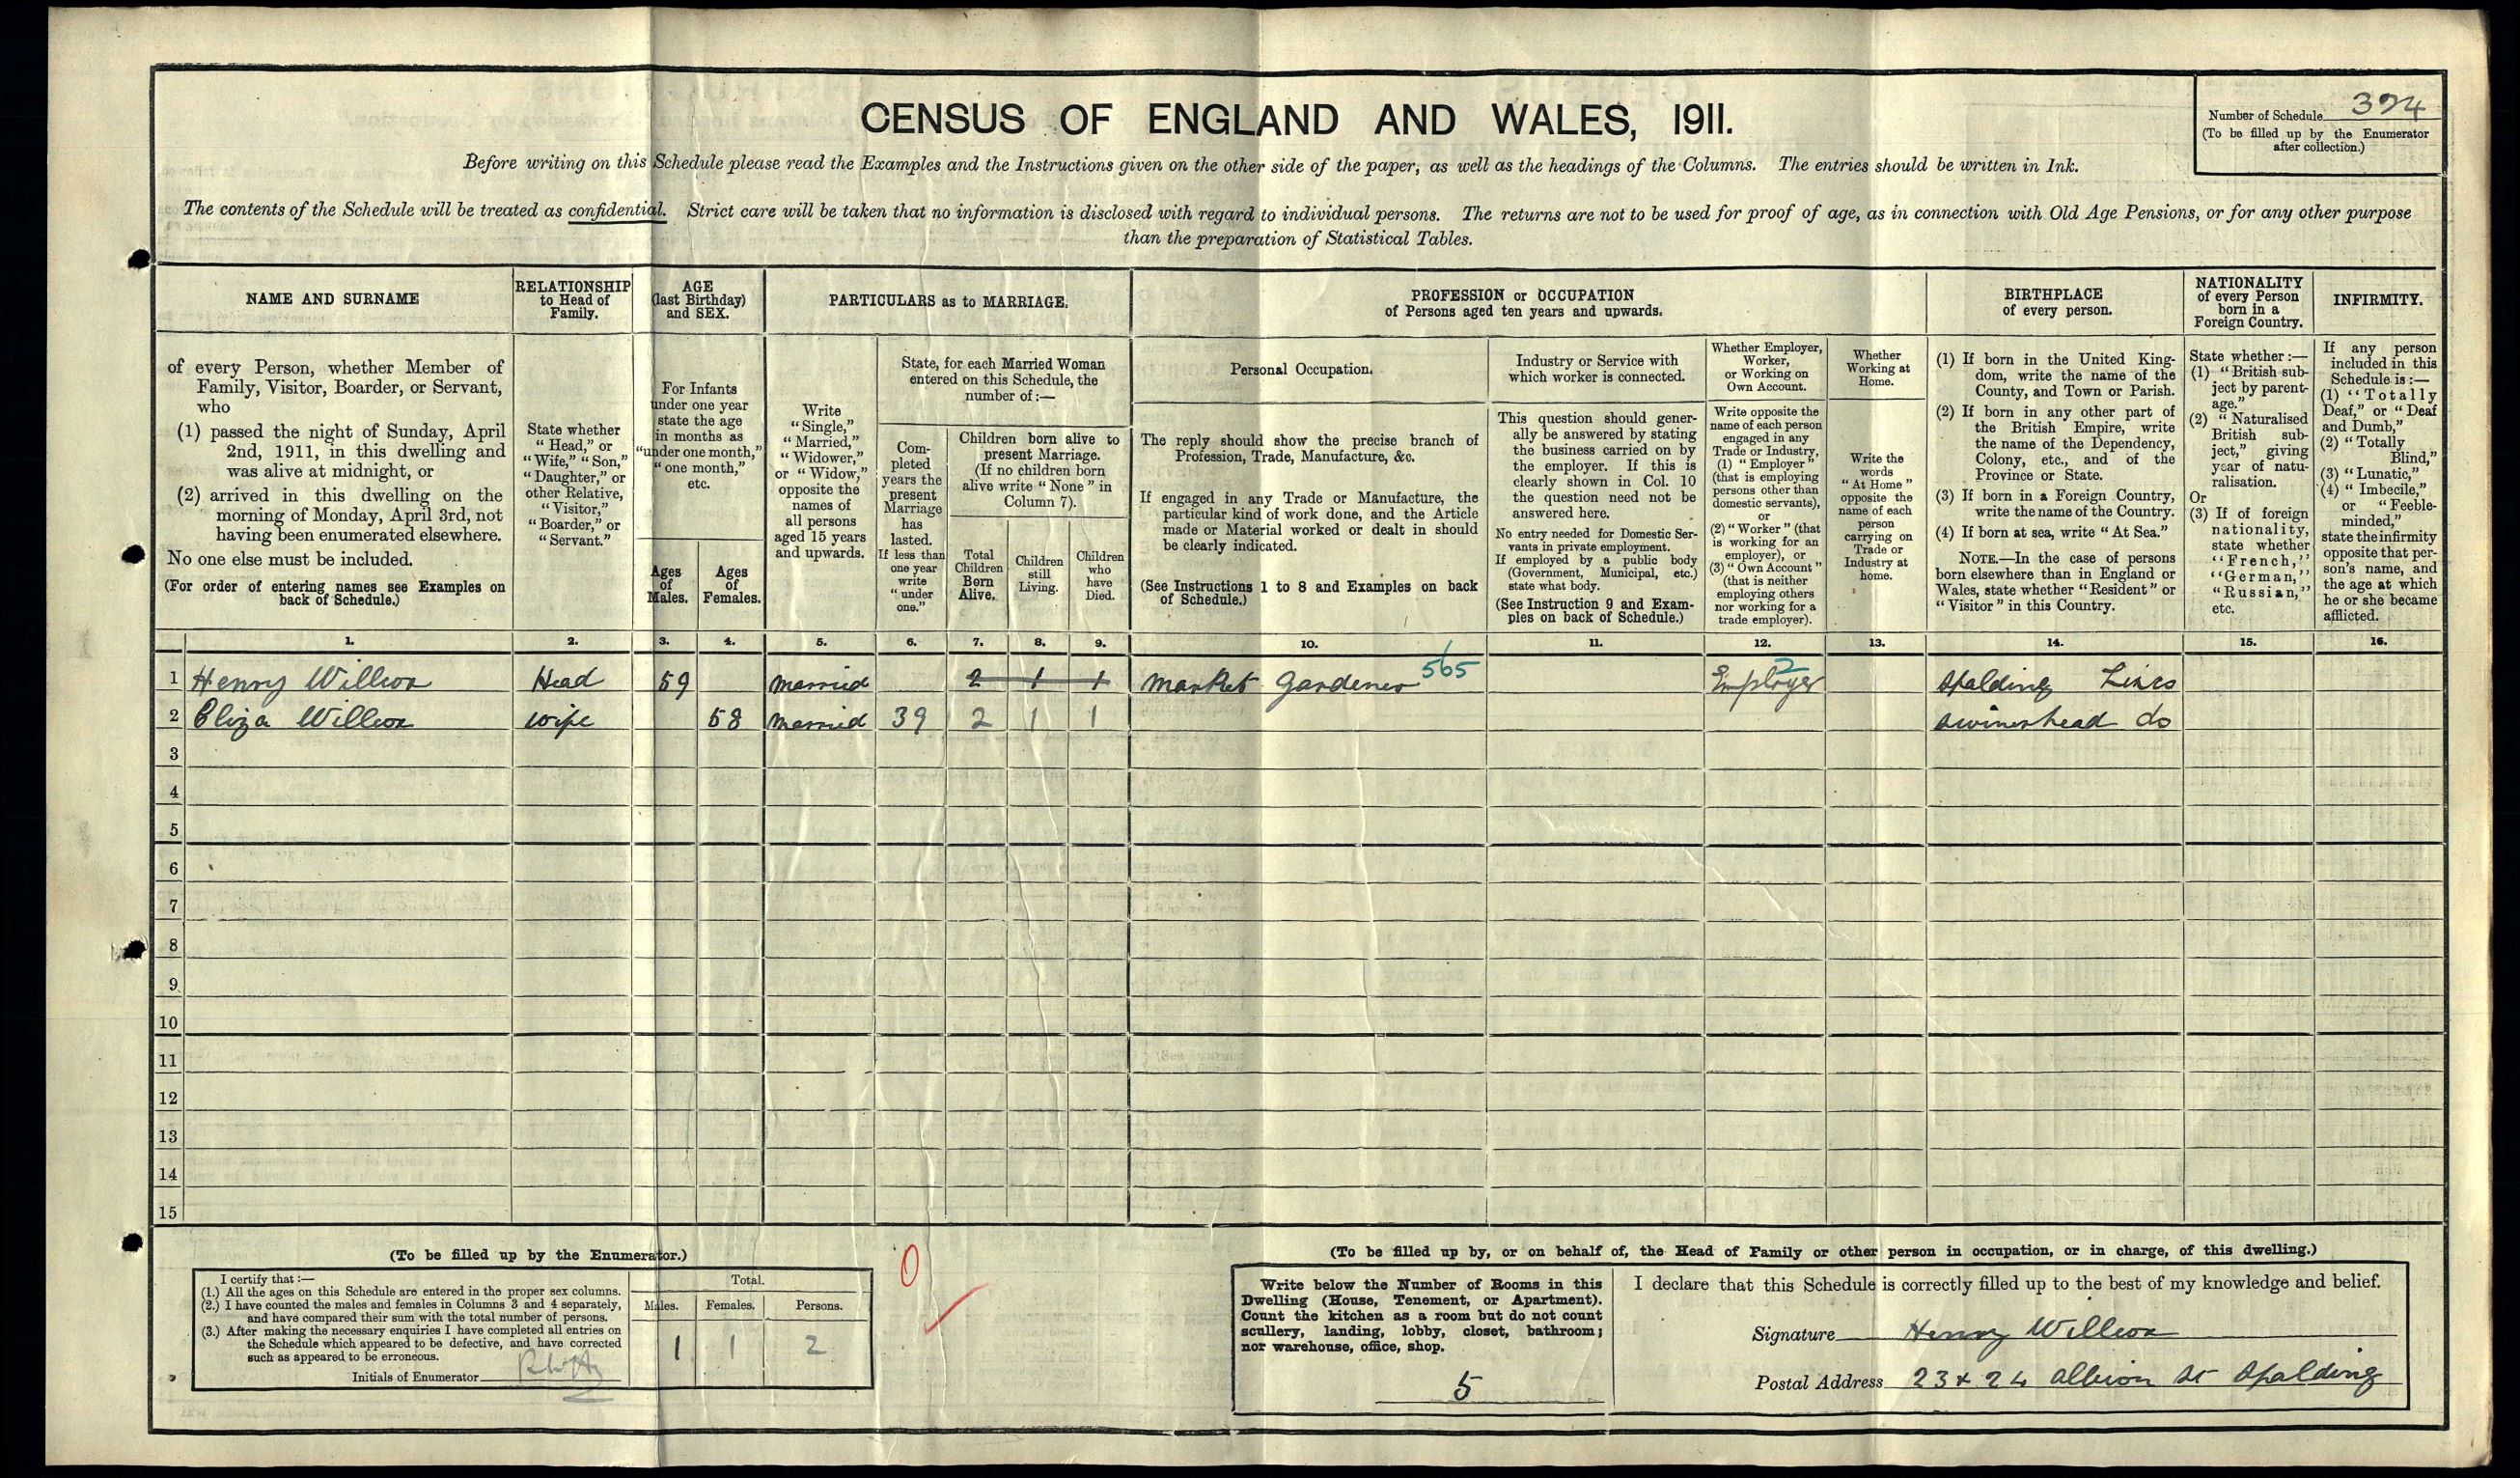 CENSUS OF ENGLAND AND WALES, 1911.
Number of Schedule 394
(To be filled up by the Enumerator
after collection.)
Before writing on this Schedule please read the Examples and the Instructions given on the other side of the paper, as well as the headings of the Columns. The entries should be written in Ink.
The contents of the Schedule will be treated as confidential. Strict care will be taken that no information is disclosed with regard to individual persons. The returns are not to be used for proof of age, as in connection with Old Age Pensions, or for any other purpose
than the preparation of Statistical Tables.
NAME AND SURNAME
of every Person, whether Member of
Family, Visitor, Boarder, or Servant,
who
(1) passed the night of Sunday, April
2nd, 1911, in this dwelling and
was alive at midnight, or
(2) arrived in this dwelling on the
morning of Monday, April 3rd, not
having been enumerated elsewhere.
No one else must be included.
(For order of entering names see Examples on
back of Schedule.)
RELATIONSHIP
to Head of
Family.
State whether
"Head," or
"Wife," "Son,"
"Daughter," or
other Relative,
"Visitor,"
"Boarder," or
"Servant."
AGE
(last Birthday)
and SEX.
For Infants
under one year
state the age
in months as
"under one month,"
"one month,"
etc.
Ages
of
Males.
Ages
of
Females.
PARTICULARS as to MARRIAGE.
Write
"Single,"
"Married,"
"Widower,"
or "Widow,"
opposite the
names of
all persons
aged 15 years
and upwards.
State, for each Married Woman
entered on this Schedule, the
number of:—
Com-
pleted
years the
present
Marriage
has
lasted.
If less than
one year
write
"under
one."
Children born alive to
present Marriage.
(If no children born
alive write "None" in
Column 7).
Total
Children
Born
Alive.
Children
still
Living.
Children
who
have
Died.
PROFESSION or OCCUPATION
of Persons aged ten years and upwards.
Personal Occupation.
The reply should show the precise branch of
Profession, Trade, Manufacture, &c.
If engaged in any Trade or Manufacture, the
particular kind of work done, and the Article
made or Material worked or dealt in should
be clearly indicated.
(See Instructions 1 to 8 and Examples on back
of Schedule.)
Industry or Service with
which worker is connected.
This question should gener-
ally be answered by stating
the business carried on by
the employer. If this is
clearly shown in Col. 10
the question need not be
answered here.
No entry needed for Domestic Ser-
vants in private employment.
If employed by a public body
(Government, Municipal, etc.)
state what body.
(See Instruction 9 and Exam-
ples on back of Schedule.)
Whether Employer,
Worker,
or Working on
Own Account.
Write opposite the
name of each person
engaged in any
Trade or Industry,
(1) "Employer"
(that is employing
persons other than
domestic servants),
or
(2) "Worker" (that
is working for an
employer), or
(3) "Own Account"
(that is neither
employing others
nor working for a
trade employer).
Whether
Working at
Home.
Write the
words
"At Home"
opposite the
name of each
person
carrying on
Trade or
Industry at
home.
BIRTHPLACE
of every person.
(1) If born in the United King-
dom, write the name of the
County, and Town or Parish.
(2) If born in any other part of
the British Empire, write
the name of the Dependency,
Colony, etc., and of the
Province or State.
(3) If born in a Foreign Country,
write the name of the Country.
(4) If born at sea, write "At Sea."
NOTE.—In the case of persons
born elsewhere than in England or
Wales, state whether "Resident" or
"Visitor" in this Country.
NATIONALITY
of every Person
born in a
Foreign Country.
State whether:—
(1) "British sub-
ject by parent-
age."
(2) "Naturalised
British sub-
ject," giving
year of natu-
ralisation.
Or
(3) If of foreign
nationality,
state whether
"French,"
"German,"
"Russian,"
etc.
INFIRMITY.
If any person
included in this
Schedule is:—
(1) "Totally
Deaf," or "Deaf
and Dumb,"
(2) "Totally
Blind,"
(3) "Lunatic,"
(4) "Imbecile,"
or "Feeble-
minded,"
state the infirmity
opposite that per-
son's name, and
the age at which
he or she became
afflicted.
1. 2. 3. 4. 5. 6. 7. 8. 9. 10. 11. 12. 13. 14. 15. 16.
1 Henry Willcox Head 59 married 2 1 1 market gardener 565 Employer 2 Spalding Lincs
2 Eliza Willcox wife 58 married 39 2 1 1 Swineshead do
3
4
5
6
7
8
9
10
11
12
13
14
15
(To be filled up by the Enumerator.)
I certify that:—
(1.) All the ages on this Schedule are entered in the proper sex columns.
(2.) I have counted the males and females in Columns 3 and 4 separately,
and have compared their sum with the total number of persons.
(3.) After making the necessary enquiries I have completed all entries on
the Schedule which appeared to be defective, and have corrected
such as appeared to be erroneous.
Initials of Enumerator
Total.
Males. Females. Persons.
1 1 2
0
(To be filled up by, or on behalf of, the Head of Family or other person in occupation, or in charge, of this dwelling.)
Write below the Number of Rooms in this
Dwelling (House, Tenement, or Apartment).
Count the kitchen as a room but do not count
scullery, landing, lobby, closet, bathroom;
nor warehouse, office, shop.
5
I declare that this Schedule is correctly filled up to the best of my knowledge and belief.
Signature Henry Willcox
Postal Address 23 & 24 albion St Spalding